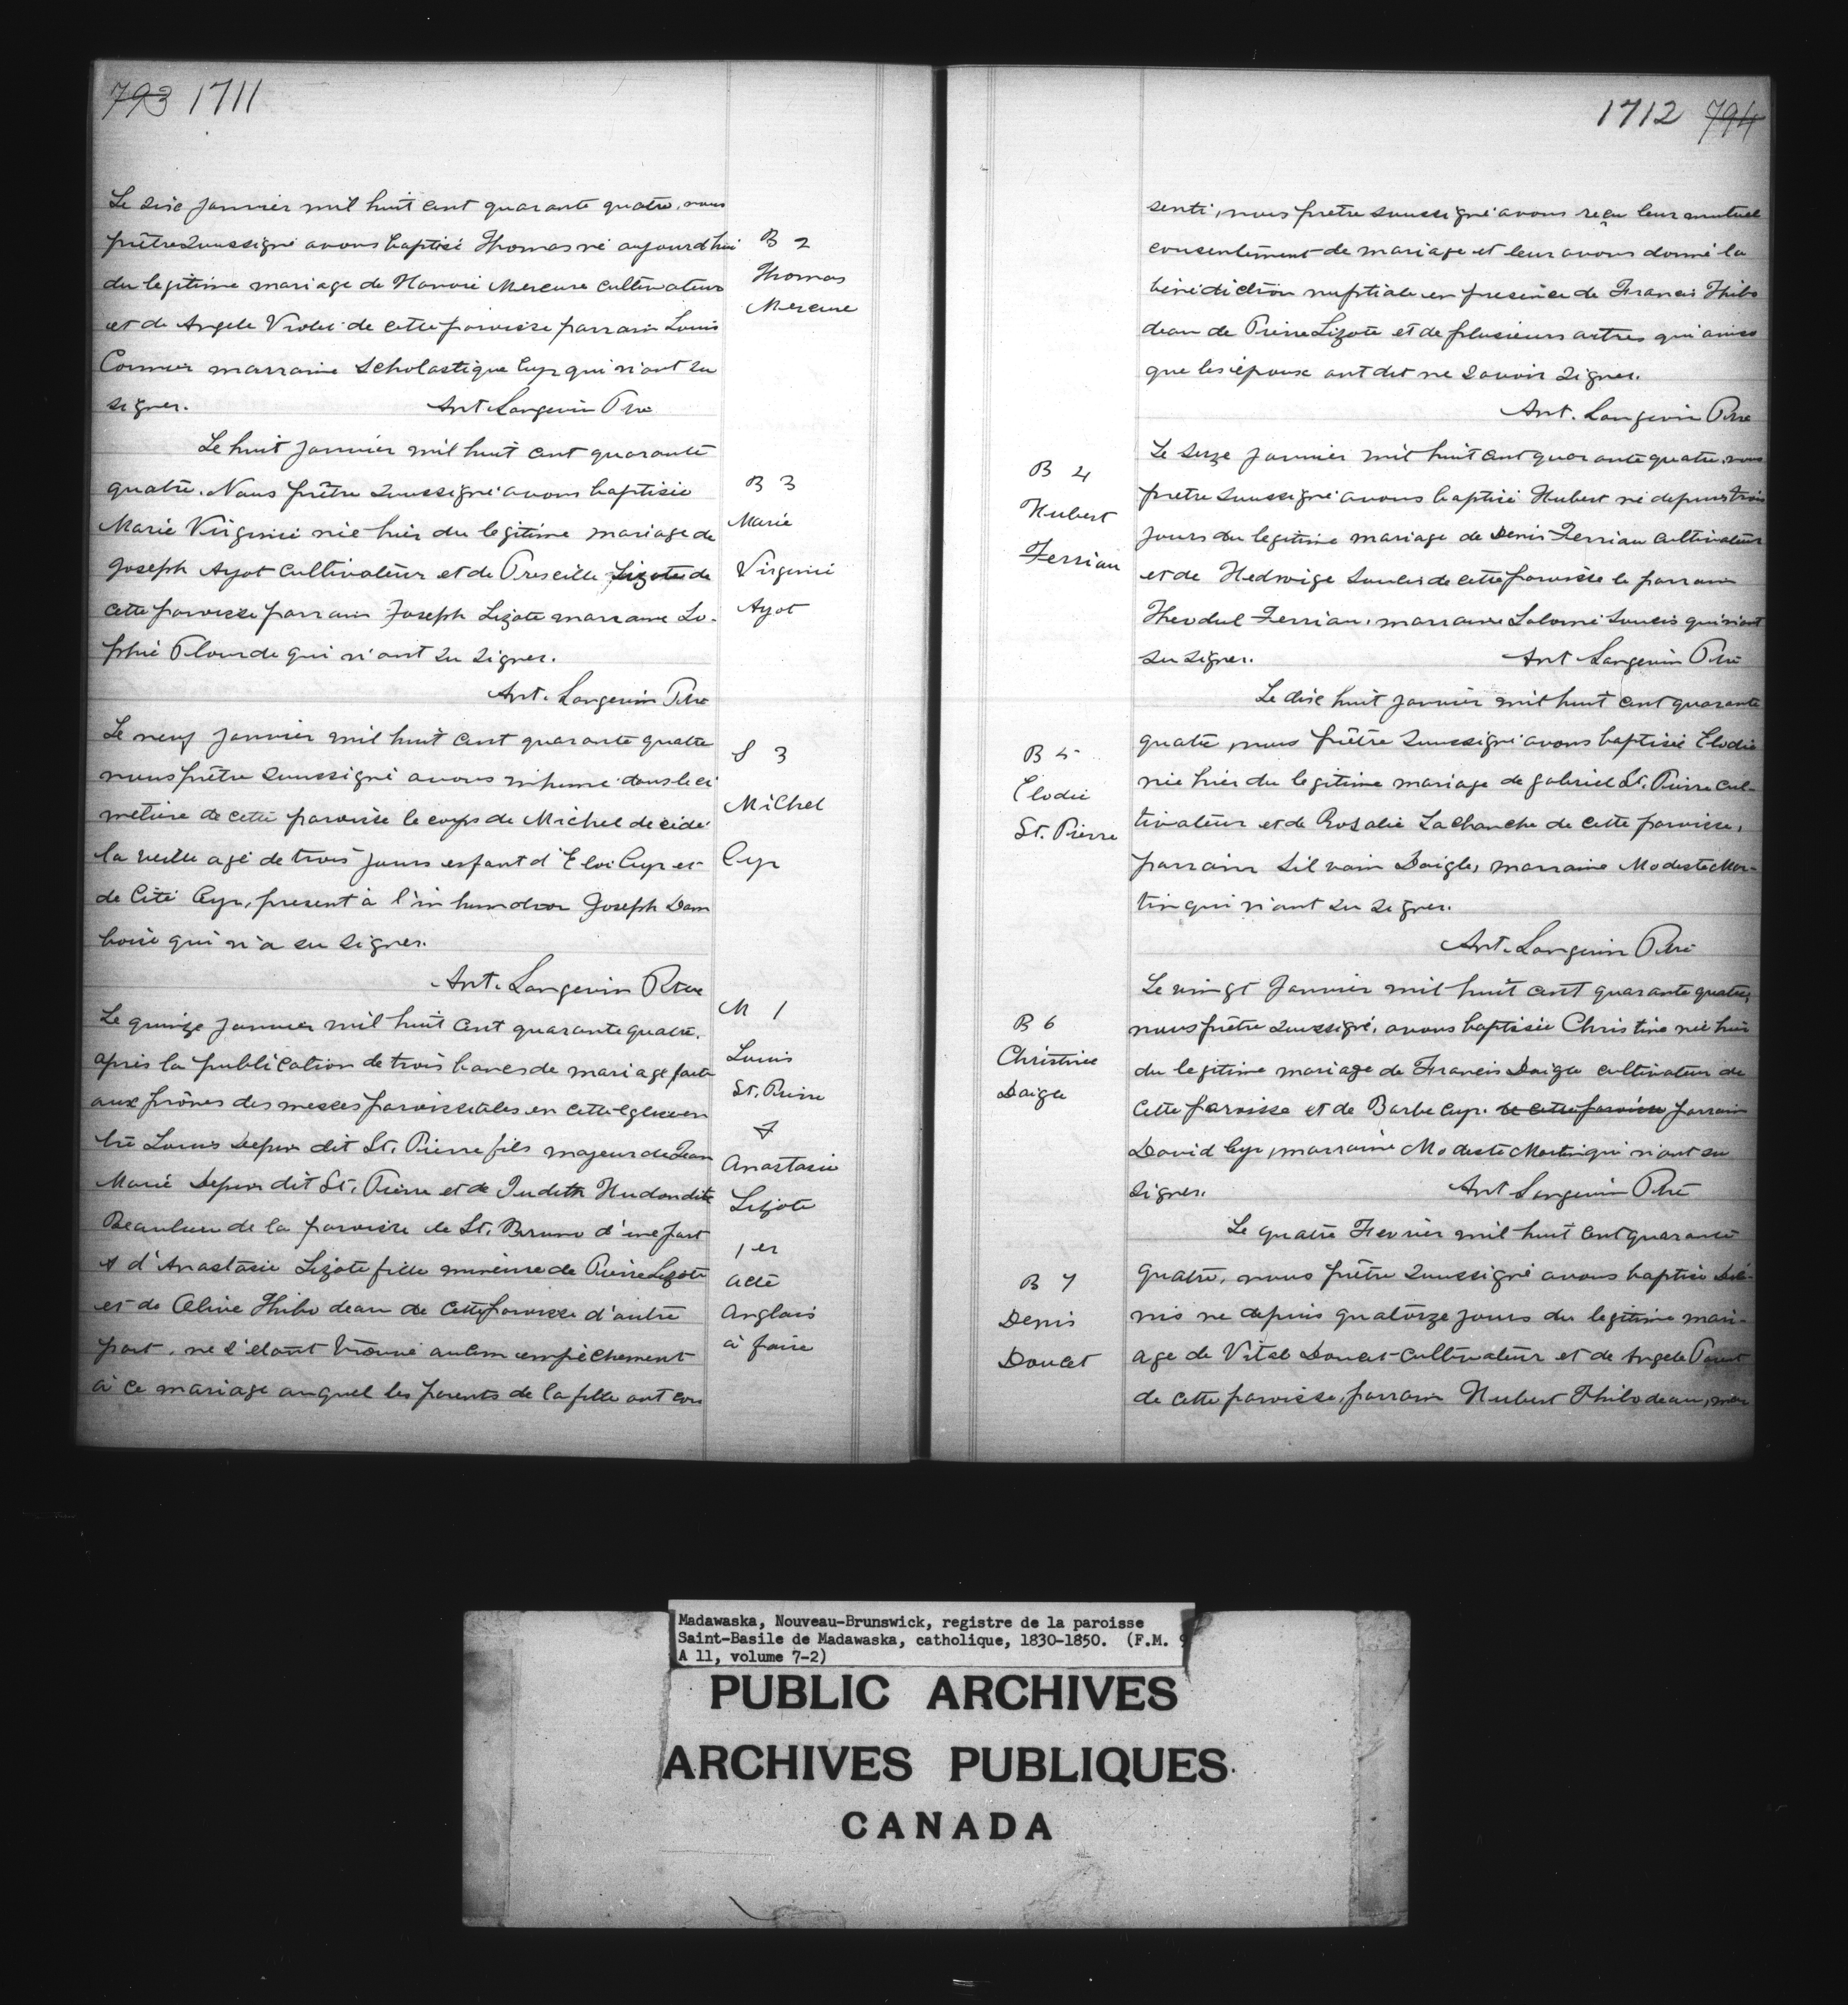 793 1711
Le dix janvier mil huit cent quarante quatre, nous
prêtre soussigné avons baptisé Thomas né aujourd'hui
du legitime mariage de Honoré Mercure cultivateur
et de Angele Violet de cette paroisse parrain Louis
Cormier marraine Scholastique Cyr qui n'ont su
signer. Ant Langevin Ptre
B 2
Thomas
Mercure
Le huit janvier mil huit cent quarante
quatre. Nous prêtre soussigné avons baptisée
Marie Virginie née hier du legitime mariage de
Joseph Ayot cultivateur et de Prescille Lizote de
cette paroisse parrain Joseph Lizote marraine So-
phie Plourde qui n'ont su signer.
Ant. Langevin Ptre
B 3
Marie
Virginie
Ayot
Le neuf janvier mil huit cent quarante quatre
nous prêtre soussigné avons inhumé dans le ci
metiere de cette paroisse le corps de Michel décédé
la veille agé de trois jours enfant d'Eloi Cyr et
de Cité Cyr, present à l'inhumation Joseph Dam
boise qui n'a su signer.
Ant. Langevin Ptre
S 3
Michel
Cyr
Le quinze janvier mil huit cent quarante quatre.
après la publication de trois bancs de mariage faite
aux prônes des messes paroissiales en cette eglise en
tre Louis Deper dit St. Pierre fils majeur de Jean
Marie Deper dit St. Pierre et de Judith Hudon dite
Beaulieu de la paroisse de St. Bruno d'une part
& d'Anastasie Lizote fille mineure de Pierre Lizote
et de Olive Thibodeau de cette paroisse d'autre
part, ne s'étant trouvé aucun empêchement
à ce mariage auquel les parents de la fille ont con
M 1
Louis
St. Pierre
&
Anastasie
Lizote
1er
acte
Anglais
à faire
1712 794
senti, nous prêtre soussigné avons reçu leur mutuel
consentement de mariage et leur avons donné la
bénédiction nuptiale en presence de Francis Thibo
deau de Pierre Lizote et de plusieurs autres qui ainsi
que les époux ont dit ne savoir signer.
Ant. Langevin Ptre
Le seize janvier mil huit cent quarante quatre, nous
pretre soussigné avons baptisé Hubert né depuis trois
jours du legitime mariage de Denis Terriau cultivateur
et de Hedwige Soucis de cette paroisse le parrain
Theodul Terriau, marraine Salomé Soucis qui n'ont
su signer. Ant Langevin Ptre
B 4
Hubert
Terriau
Le dix huit janvier mil huit cent quarante
quatre, nous prêtre soussigné avons baptisée Elodie
née hier du legitime mariage de Gabriel St. Pierre cul-
tivateur et de Rosalie Lachanche de cette paroisse,
parrain Silvain Daigle, marraine Modeste Mar-
tin qui n'ont su signer.
Ant. Langevin Ptre
B 5
Elodie
St. Pierre
Le vingt Janvier mil huit cent quarante quatre,
nous prêtre soussigné, avons baptisée Christine née hier
du legitime mariage de Francis Daigle cultivateur de
cette paroisse et de Barbe Cyr. de cette paroisse parrain
David Cyr, marraine Modeste Martin qui n'ont su
signer. Ant Langevin Ptre
B 6
Christine
Daigle
Le quatre Fevrier mil huit cent quarante
quatre, nous prêtre soussigné avons baptisé Dé-
nis né depuis quatorze jours du legitime mari-
age de Vital Doucet cultivateur et de Angele Parent
de cette paroisse, parrain Hubert Thibodeau, mar
B 7
Denis
Doucet
Madawaska, Nouveau-Brunswick, registre de la paroisse
Saint-Basile de Madawaska, catholique, 1830-1850. (F.M. 9
A 11, volume 7-2)
PUBLIC ARCHIVES
ARCHIVES PUBLIQUES
CANADA